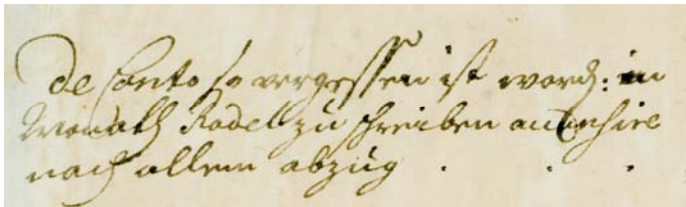 de Conto so vergessen ist word: in
Monath Rodel zu schreiben
nach allem abzug . . .